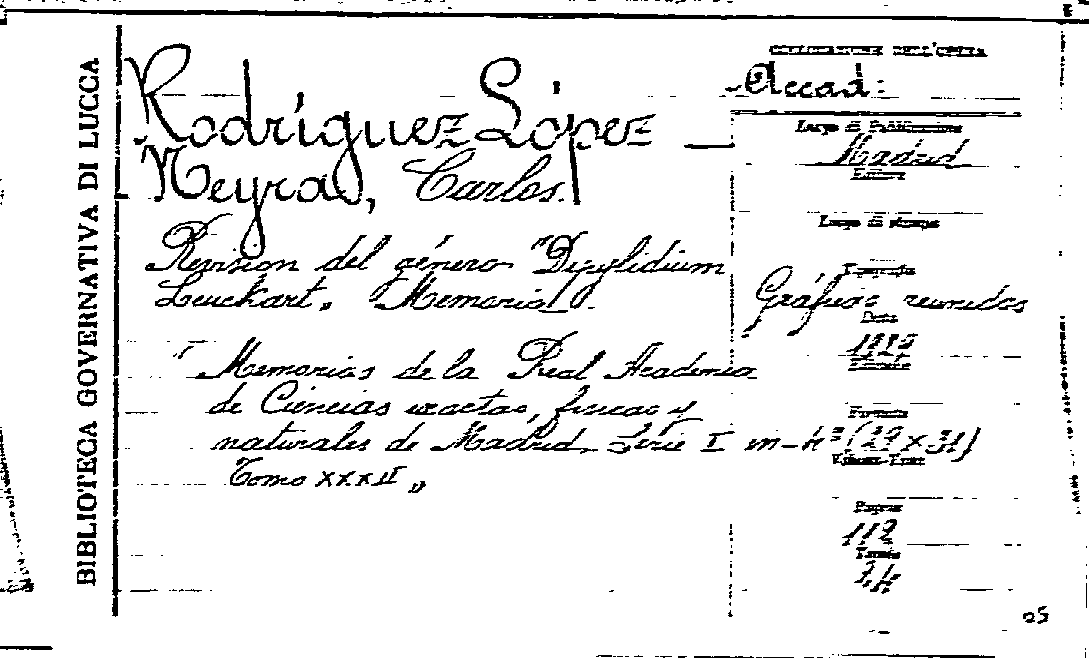 BIBLIOTECA GOVERNATIVA DI LUCCA
Rodríguez López
Neyra, Carlos
Revision del género "Dipylidium
Leuckart. Memoria.
"Memorias de la Real Academia
de Ciencias exactas, fisicas y
naturales de Madrid. Serie I
Tomo XXXII "
COLLOCAZIONE DELL'OPERA
Accad:
Luogo di Pubblicazione
Madrid
Editore
Luogo di stampa
Tipografia
Gráficas reunidas
Data
Formato
in-4º (29 x 31)
Pagine
112
Tavole
24
25